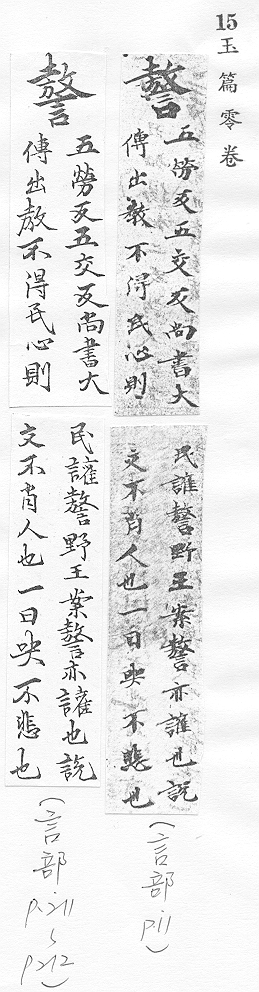 15玉篇零卷
謷
五勞反五交反尚書大
傳出教不得民心則
民讙謷野王案謷亦讙也說
文不肖人也一曰哭不悲也
(言部 P.11)
謷
五勞反五交反尚書大
傳出教不得民心則
民讙謷野王案謷亦讙也說
文不肖人也一曰哭不悲也
(言部 P.211~P212)